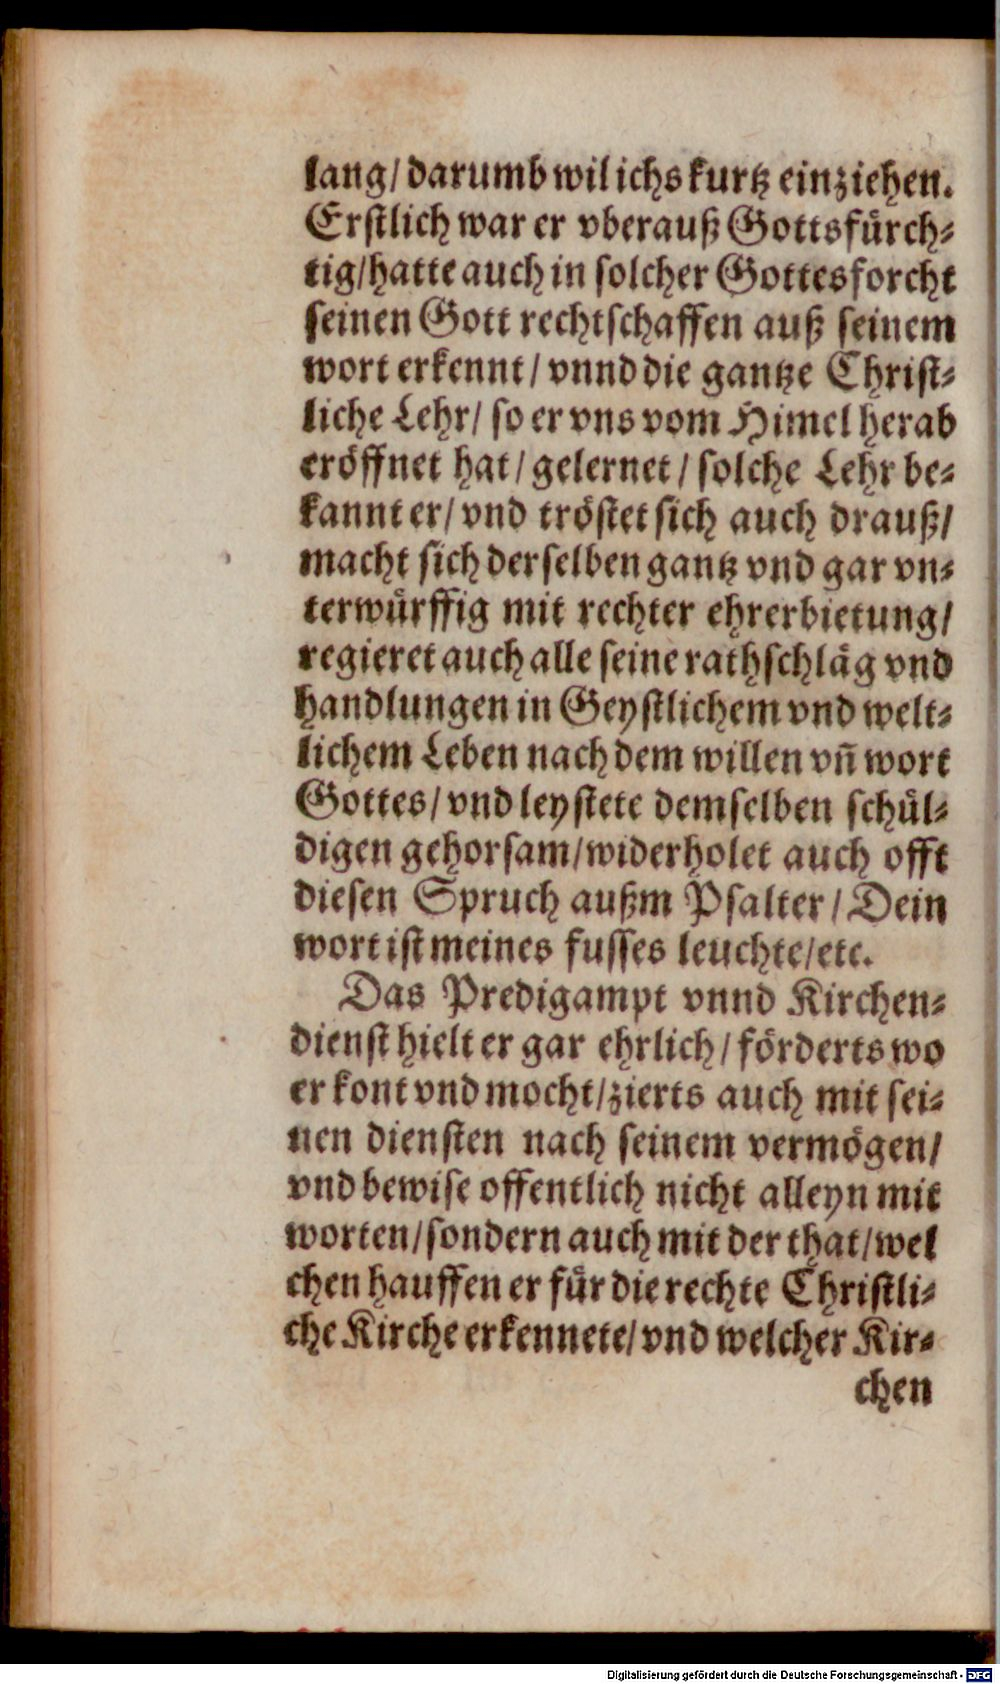 lang/ darumb wil ichs kurtz einziehen.
Erstlich war er vberauß Gottsfürch⸗
tig/ hatte auch in solcher Gottesforcht
seinen Gott rechtschaffen auß seinem
wort erkennt/ vnnd die gantze Christ⸗
liche Lehr/ so er vns vom Himel herab
eröffnet hat/ gelernet/ solche Lehr be⸗
kannt er/ vnd tröstet sich auch drauß/
macht sich derselben gantz vnd gar vn⸗
terwürffig mit rechter ehrerbietung/
regieret auch alle seine rathschläg vnd
handlungen in Geystlichem vnd welt⸗
lichem Leben nach dem willen vn̄ wort
Gottes/ vnd leystete demselben schül⸗
digen gehorsam/ widerholet auch offt
diesen Spruch außm Psalter/ Dein
wort ist meines fusses leuchte/ etc.
Das Predigampt vnnd Kirchen⸗
dienst hielt er gar ehrlich/ förderts wo
er kont vnd mocht/ zierts auch mit sei⸗
nen diensten nach seinem vermögen/
vnd bewise offentlich nicht alleyn mit
worten/ sondern auch mit der that/ wel
chen hauffen er für die rechte Christli⸗
che Kirche erkennete/ vnd welcher Kir⸗
chen
Digitalisierung gefördert durch die Deutsche Forschungsgemeinschaft - DFG